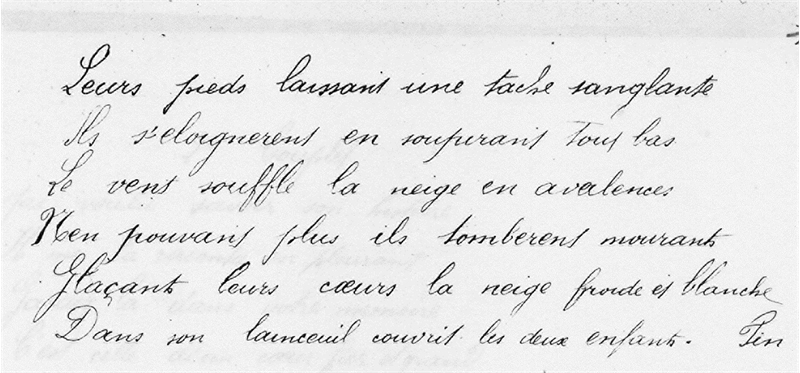 Leurs pieds laissant une tache sanglante
Ils s'eloignerent en soupirant tout bas
Le vent souffle la neige en avalences
N'en pouvant plus ils tomberent mourants
Glaçant leurs cœurs la neige froide et blanche
Dans son lainceuil couvrit les deux enfants. Fin